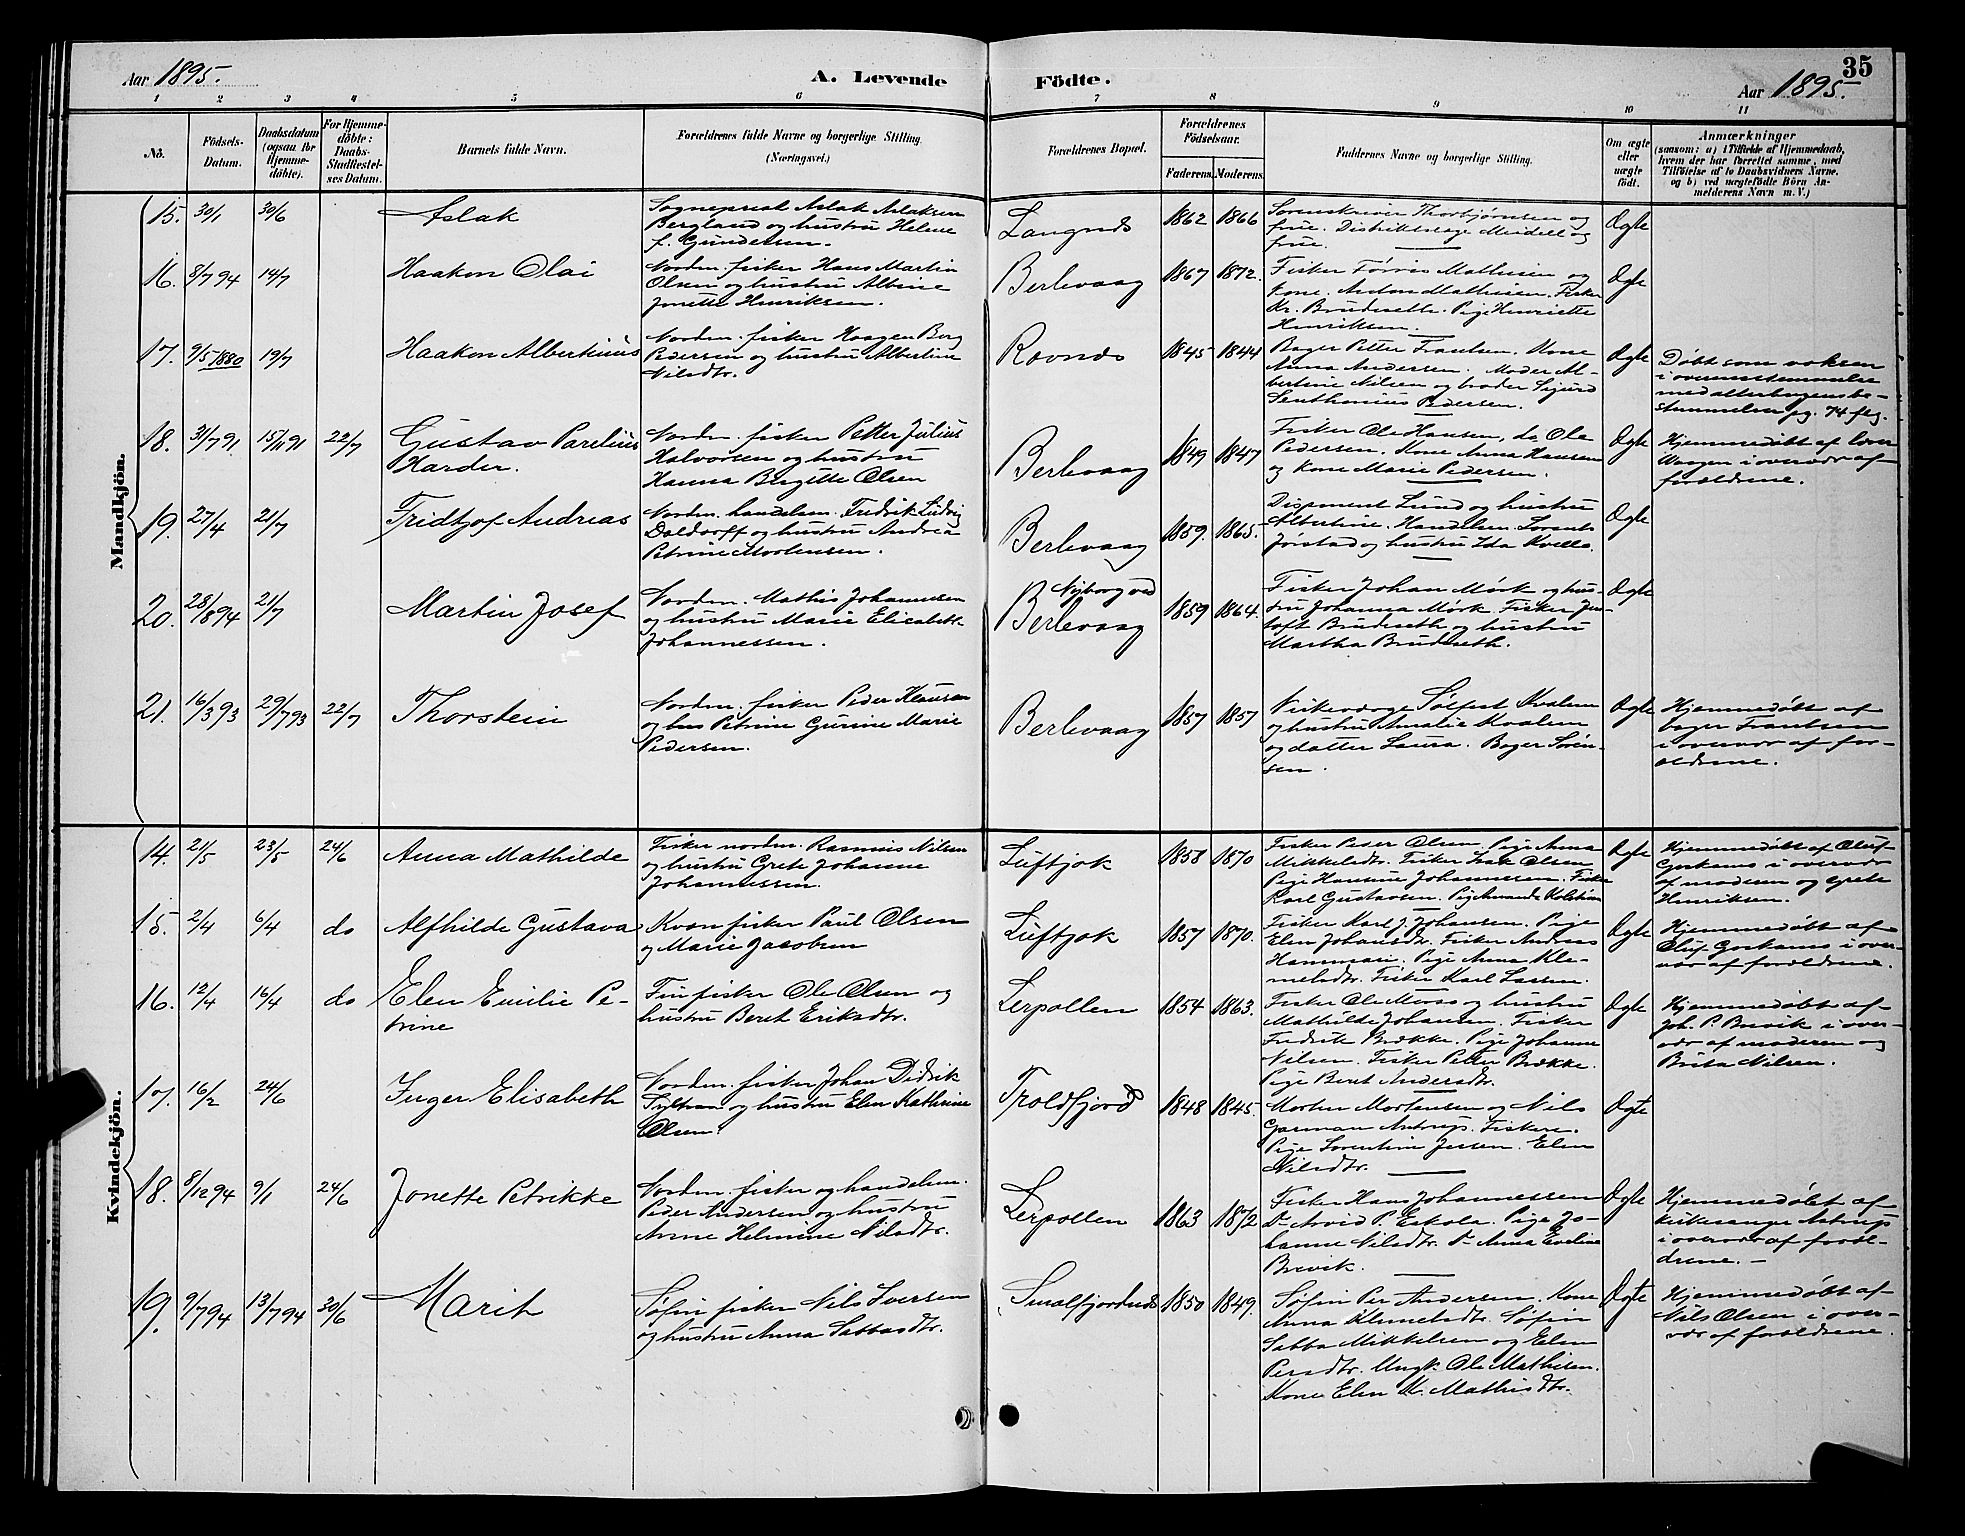 35
Aar 1895.
A. Levende
Födte.
Aar 1895.
1 2 3 4 5 6 7 8 9 10 11
No.
Födsels-
Datum.
Daabsdatum
(ogsaa for
Hjemme-
döbte).
For Hjemme-
döbte:
Daabs-
Stadfæstel-
ses Datum.
Barnets fulde Navn.
Forældrenes fulde Navne og borgerlige Stilling.
(Næringsvei.)
Forældrenes Bopæl.
Forældrenes
Födselsaar.
Faderens.
Moderens.
Faddernes Navne og borgerlige Stilling.
Om ægte
eller
uægte
födt.
Anmærkninger
(saasom: a) i Tilfælde af Hjemmedaab,
hvem der har forrettet samme, med
Tilföielse af to Daabsvidners Navne.
og b) ved uægtefödte Börn An-
melderens Navn m. V.)
Mandkjön.
15. 30/1 30/6 Aslak
Sogneprest Aslak Aslaksen
Bergland og hustru Helene
f. Gundersen.
Langnes 1862 1866
Sorenskriver Thorbjørnsen og
frue. Distriktslæge Meidell og
frue.
Ægte
16. 8/7 94 14/7 Haakon Olai
Nordm. fisker Hans Martin
Olsen og hustru Albine
Jonette Henriksen.
Berlevaag 1867 1872.
Fisker Mathisen og
kone. Anton Mathisen. Fisker
Kr. Brudeseth. Pige Henriette
Henriksen.
Ægte
17. 9/5 1880 19/7 Haakon Albertinus
Nordm. fisker Haagen Berg
Pedersen og hustru Albertine
Nilsdtr.
Ravnes 1845 1844
Bager Petter Frantsen. Kone
Anna Andersen. Moder Al-
bertine Nilsen og broder Sigurd
Pedersen.
Ægte
Døbt som voksen
i overensstemmelse
med alterbogens be-
stemmelser pg. 74 flg.
18. 31/7 91 15/11 91 22/7 Gustav Parelius
Harder.
Nordm. fisker Petter Julius
Halvorsen og hustru
Hanna Birgitte Olsen
Berlevaag 1849 1847
Fisker Ole Hansen, do Ole
Pedersen. Kone Anna Hansen
og kone Marie Pedersen.
Ægte
Hjemmedøbt af
i overvær af
forældrene.
19. 27/4 21/7 Fridtjof Andreas
Nordm. handelsm. Fredrik Ludvig
Daldorff og hustru Andrea
Petrine Mortensen.
Berlevaag 1859. 1865.
Disponent Lund og hustru
Albertine. Handelsm. Lorents
Jørstad og hustru Ida Kvello.
Ægte
20. 28/8 94 21/7 Martin Josef
Nordm. Mathis Johannesen
og hustru Marie Elisabeth
Johannessen.
Nyborg ved
Berlevaag 1859 1864.
Fisker Johan Mørk og hus-
tru Johanna Mørk. Fisker Jen-
toft Brudeseth og hustru
Martha Brudeseth.
Ægte
21. 16/3 93 29/7 93 22/7 Thorstein
Nordm. fisker Peder Klausen
og hus Petrine Gurine Marie
Pedersen.
Berlevaag 1857 1857
Sølfest Kvalem
og hustru Amalie Kvalem
og datter Laura. Bager Sören-
sen.
Ægte
Hjemmedøbt af
bager Frantsen
i overvær af for-
ældrene.
Kvindekjön.
14. 21/5 23/5 24/6 Anna Mathilde
Fisker nordm. Rasmus Nilsen
og hustru Grete Johanne
Johannessen.
Luftjok 1858 1870
Fisker Peder Olsen. Pige Anna
Mikkelsdtr. Fisker Isak Olsen
Pige Hansine Johannessen. Fisker
Karl Gustavsen. Pige Amanda Kolstrøm
Ægte
Hjemmedøbt af Oluf
i overvær
af moderen og Grete
Henriksen.
15. 2/4 6/4 do Alfhilde Gustava
Kvæn fisker Paul Olsen
og Marie Jacobsen
Luftjok 1857 1870.
Fisker Karl J. Johansen. Pige
Elen Johansdtr. Fisker Andreas
Hammari. Pige Anna Kle-
metsdtr. Fisker Karl Lassen.
Ægte
Hjemmedøbt af
Oluf i over-
vær af forældrene.
16. 12/4 16/4 do Elen Emilie Pe-
trine
Fin fisker Ole Olsen og
hustru Beret Eriksdtr.
Lerpollen 1854 1863.
Fisker Ole Moss og hustru
Mathilde Johansen. Fisker
Fredrik Brække. Pige Johanne
Nilsen. Fisker Petter Brække.
Pige Berit Andersdtr.
Ægte
Hjemmedøbt af
Joh. P. Brevik i over-
vær af moderen og
Brita Nilsen.
17. 16/2 24/6 Inger Elisabeth
Nordm. fisker Johan Didrik
og hustru Elen Kathrine
Olsen.
Troldfjord 1848 1845.
Morten Mortensen og Nils
Garman Astrup. Fiskere.
Pige Sorentine Jessen. Elen
Nilsdtr.
Ægte
18. 8/12 94 9/1 24/6 Jonette Petrikke
Norden. fisker og handelsm.
Peder Andersen og hustru
Anne Helmine Nilsdtr.
Lerpollen 1863 1872
Fisker Hans Johannessen
Do Arvid P. Eskola. Pige Jo-
hanne Nilsdtr. Do Anna Eveline
Brevik.
Ægte
Hjemmedøbt af
kirkesanger Astrup
i overvær af foræl-
drene.
19. 9/7 94 13/7 94 30/6 Marit
Søfin fisker Nils Iversen
og hustru Anna Sabbasdtr.
Smalfjordnes 1850 1849.
Søfin Per Andersen. Kone
Anna Klemetsdtr. Søfin
Sabba Mikkelsen og Elen
Persdtr. Ungk. Ole Mathisen.
Kone Elen K. Mathisdtr.
Ægte
Hjemmedøbt af
Nils Olsen i over-
vær af forældrene.